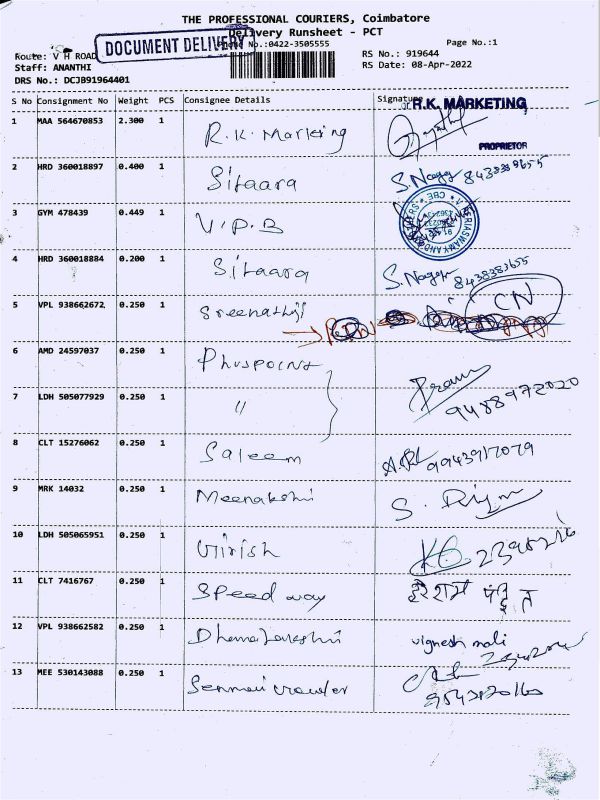 THE PROFESSIONAL COURIERS, Coimbatore
Delivery Runsheet - PCT
DOCUMENT DELIVERY
Phone No.:0422-3505555
Page No.:1
Route: V H ROAD
RS No.: 919644
Staff: ANANTHI
RS Date: 08-Apr-2022
DRS No.: DCJB91964401
S No Consignment No Weight PCS Consignee Details Signature
For R.K. MARKETING
1 MAA 564670853 2.300 1 R.K. Marking
PROPRIETOR
2 HRD 360018897 0.400 1 Sitaara S. Nagar
3 GYM 478439 0.449 1 V.P.B
4 HRD 360018884 0.200 1 Sitaara S. Nagar 8438383655
5 VPL 938662672 0.250 1 Sreenathji CN
6 AMD 24597037 0.250 1 Pluspoint
7 LDH 505077929 0.250 1 " 9488972020
8 CLT 15276062 0.250 1 Saleem 9943917079
9 MRK 14032 0.250 1 Meenakshi S. Diya
10 LDH 505065951 0.250 1 Girish
11 CLT 7416767 0.250 1 Speed way
12 VPL 938662582 0.250 1 Dhanalakshmi vignesh mali
13 MEE 530143088 0.250 1